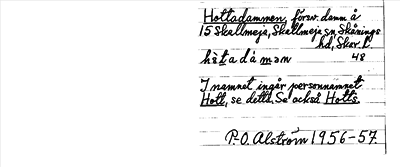 Hottadammen, försv. damm å
15 Skallmeja, Skallmeja sn, Skånings
hd, Skar. l.
hòtadámən 48
I namnet ingår personnamnet
Hott, se detta. Se också Hotts.
P.-O. Alström 1956-57.